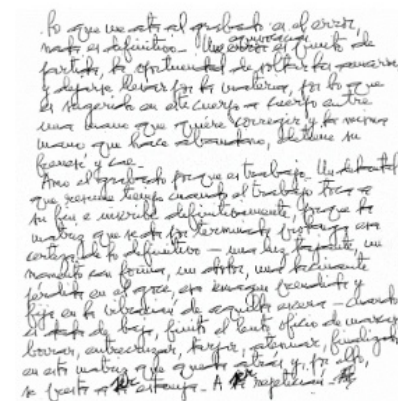 Lo que me ata al grabado es el error,
nada es definitivo. Una equivocación es punto de
partida, la oportunidad de soltar las amarras
y dejarse llevar por la materia, por lo que
es sugerido en este cuerpo a cuerpo entre
una mano que quiere corregir y la misma
mano que hace abandono, detiene su
frenesí y cae.
Amo el grabado porque es trabajo. Un
que resume tiempo cuando el trabajo toca a
su fin e inscribe definitivamente, porque la
matriz que se da por terminada prolonga esa
certeza de lo definitivo — una luz, un
momento con forma, un
perdido en el agua, esa imagen prendida y
fija en la vibración de aquello — cuando
el de bajo, finito el lento oficio de marcar
borrar, entrecruzar, atenuar, finalizado
en esta matriz que queda atrás y, por ello,
se presta a la estampa. A la repetición.